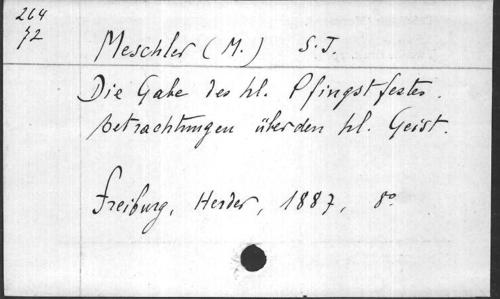 264
72
Meschler (M.) S.J.
Die Gabe des hl. Pfingstfestes.
Betrachtungen über den hl. Geist.
Freiburg, Herder, 1887, 8º.